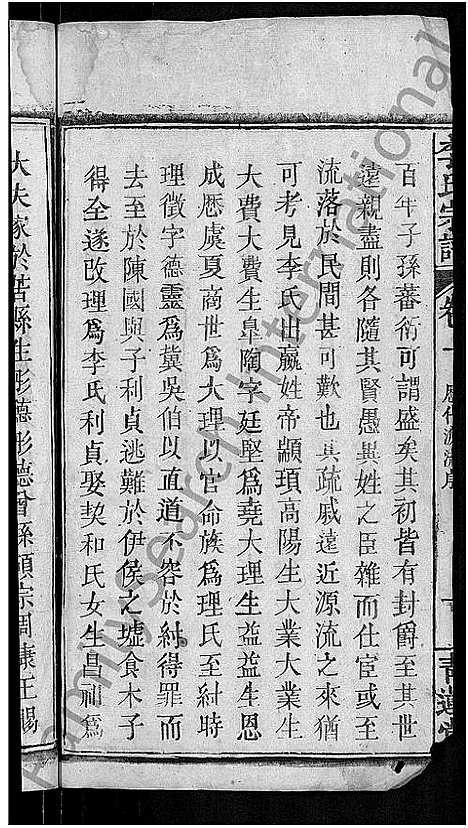 李氏宗譜
卷一
歷代源流序
青蓮堂
百年子孫蕃衍可謂盛矣其初皆有封爵至其世
遠親盡則各隨其賢愚異姓之臣雜而仕宦或至
流落於民間甚可歎也其疏戚遠近源流之來猶
可考見李氏出嬴姓帝顓頊高陽生大業大業生
大費大費生皐陶字廷堅爲堯大理生益益生恩
成歷虞夏商世爲大理以官命族爲理氏至紂時
理徵字德靈爲冀吳伯以直道不容於紂得罪而
去至於陳國與子利貞逃難於伊侯之墟食木子
得全遂改理爲李氏利貞娶契和氏女生昌祖爲
大夫家於苦縣生彤德彤德曾孫碩宗周康王賜
FamilySearch International